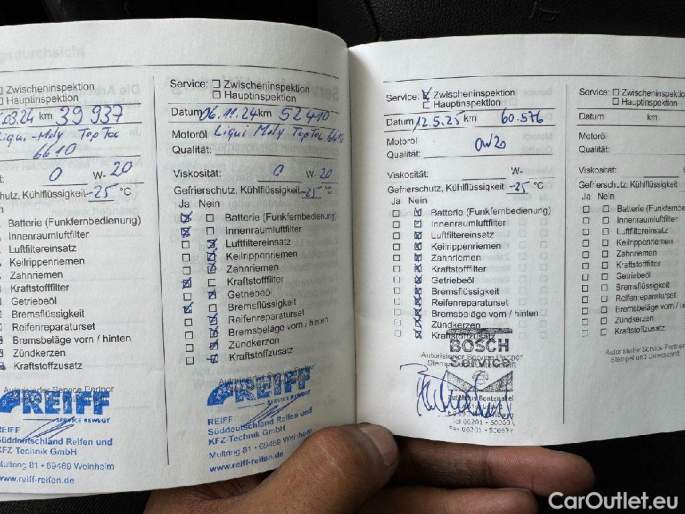 km 39 937
Liqui-Moly TopTec
6610
0 W-20
schutz, Kühlflüssigkeit -25 °C
Batterie (Funkfernbedienung)
Innenraumluftfilter
Luftfiltereinsatz
Keilrippenriemen
Zahnriemen
Kraftstofffilter
Getriebeöl
Bremsflüssigkeit
Reifenreparaturset
Bremsbeläge vorn / hinten
Zündkerzen
Kraftstoffzusatz
REIFF
REIFF
Süddeutschland Reifen und
KFZ Technik GmbH
Multring 81 • 69469 Weinheim
www.reiff-reifen.de
Service: Zwischeninspektion
Hauptinspektion
Datum 06.11.24 km 52410
Motoröl Liqui Moly TopTec 6610
Qualität:
Viskosität: 0 W-20
Gefrierschutz, Kühlflüssigkeit -25 °C
Ja Nein
Batterie (Funkfernbedienung)
Innenraumluftfilter
Luftfiltereinsatz
Keilrippenriemen
Zahnriemen
Kraftstofffilter
Getriebeöl
Bremsflüssigkeit
Reifenreparaturset
Bremsbeläge vorn / hinten
Zündkerzen
Kraftstoffzusatz
REIFF
SERVICE BEWEGT
REIFF
Süddeutschland Reifen und
KFZ Technik GmbH
Multring 81 • 69469 Weinheim
www.reiff-reifen.de
Service: Zwischeninspektion
Hauptinspektion
Datum 12.5.25 km 60.576
Motoröl 0W20
Qualität:
Viskosität: W-
Gefrierschutz, Kühlflüssigkeit -25 °C
Ja Nein
Batterie (Funkfernbedienung)
Innenraumluftfilter
Luftfiltereinsatz
Keilrippenriemen
Zahnriemen
Kraftstofffilter
Getriebeöl
Bremsflüssigkeit
Reifenreparaturset
Bremsbeläge vorn / hinten
Zündkerzen
Kraftstoffzusatz
Autorisierter Service Partner
BOSCH
Service
Service: Zwischeninspektion
Hauptinspektion
Datum km
Motoröl
Qualität:
Viskosität: W-
Gefrierschutz, Kühlflüssigkeit
Ja Nein
Batterie (Funkfernbed
Innenraumluftfilter
Luftfiltereinsatz
Keilrippenriemen
Zahnriemen
Kraftstofffilter
Getriebeöl
Bremsflüssigkeit
Reifenreparaturset
Bremsbeläge vorn / hin
Zündkerzen
Kraftstoffzusatz
Autorisierter Service Partner
Stempel und Unterschrift
CarOutlet.eu